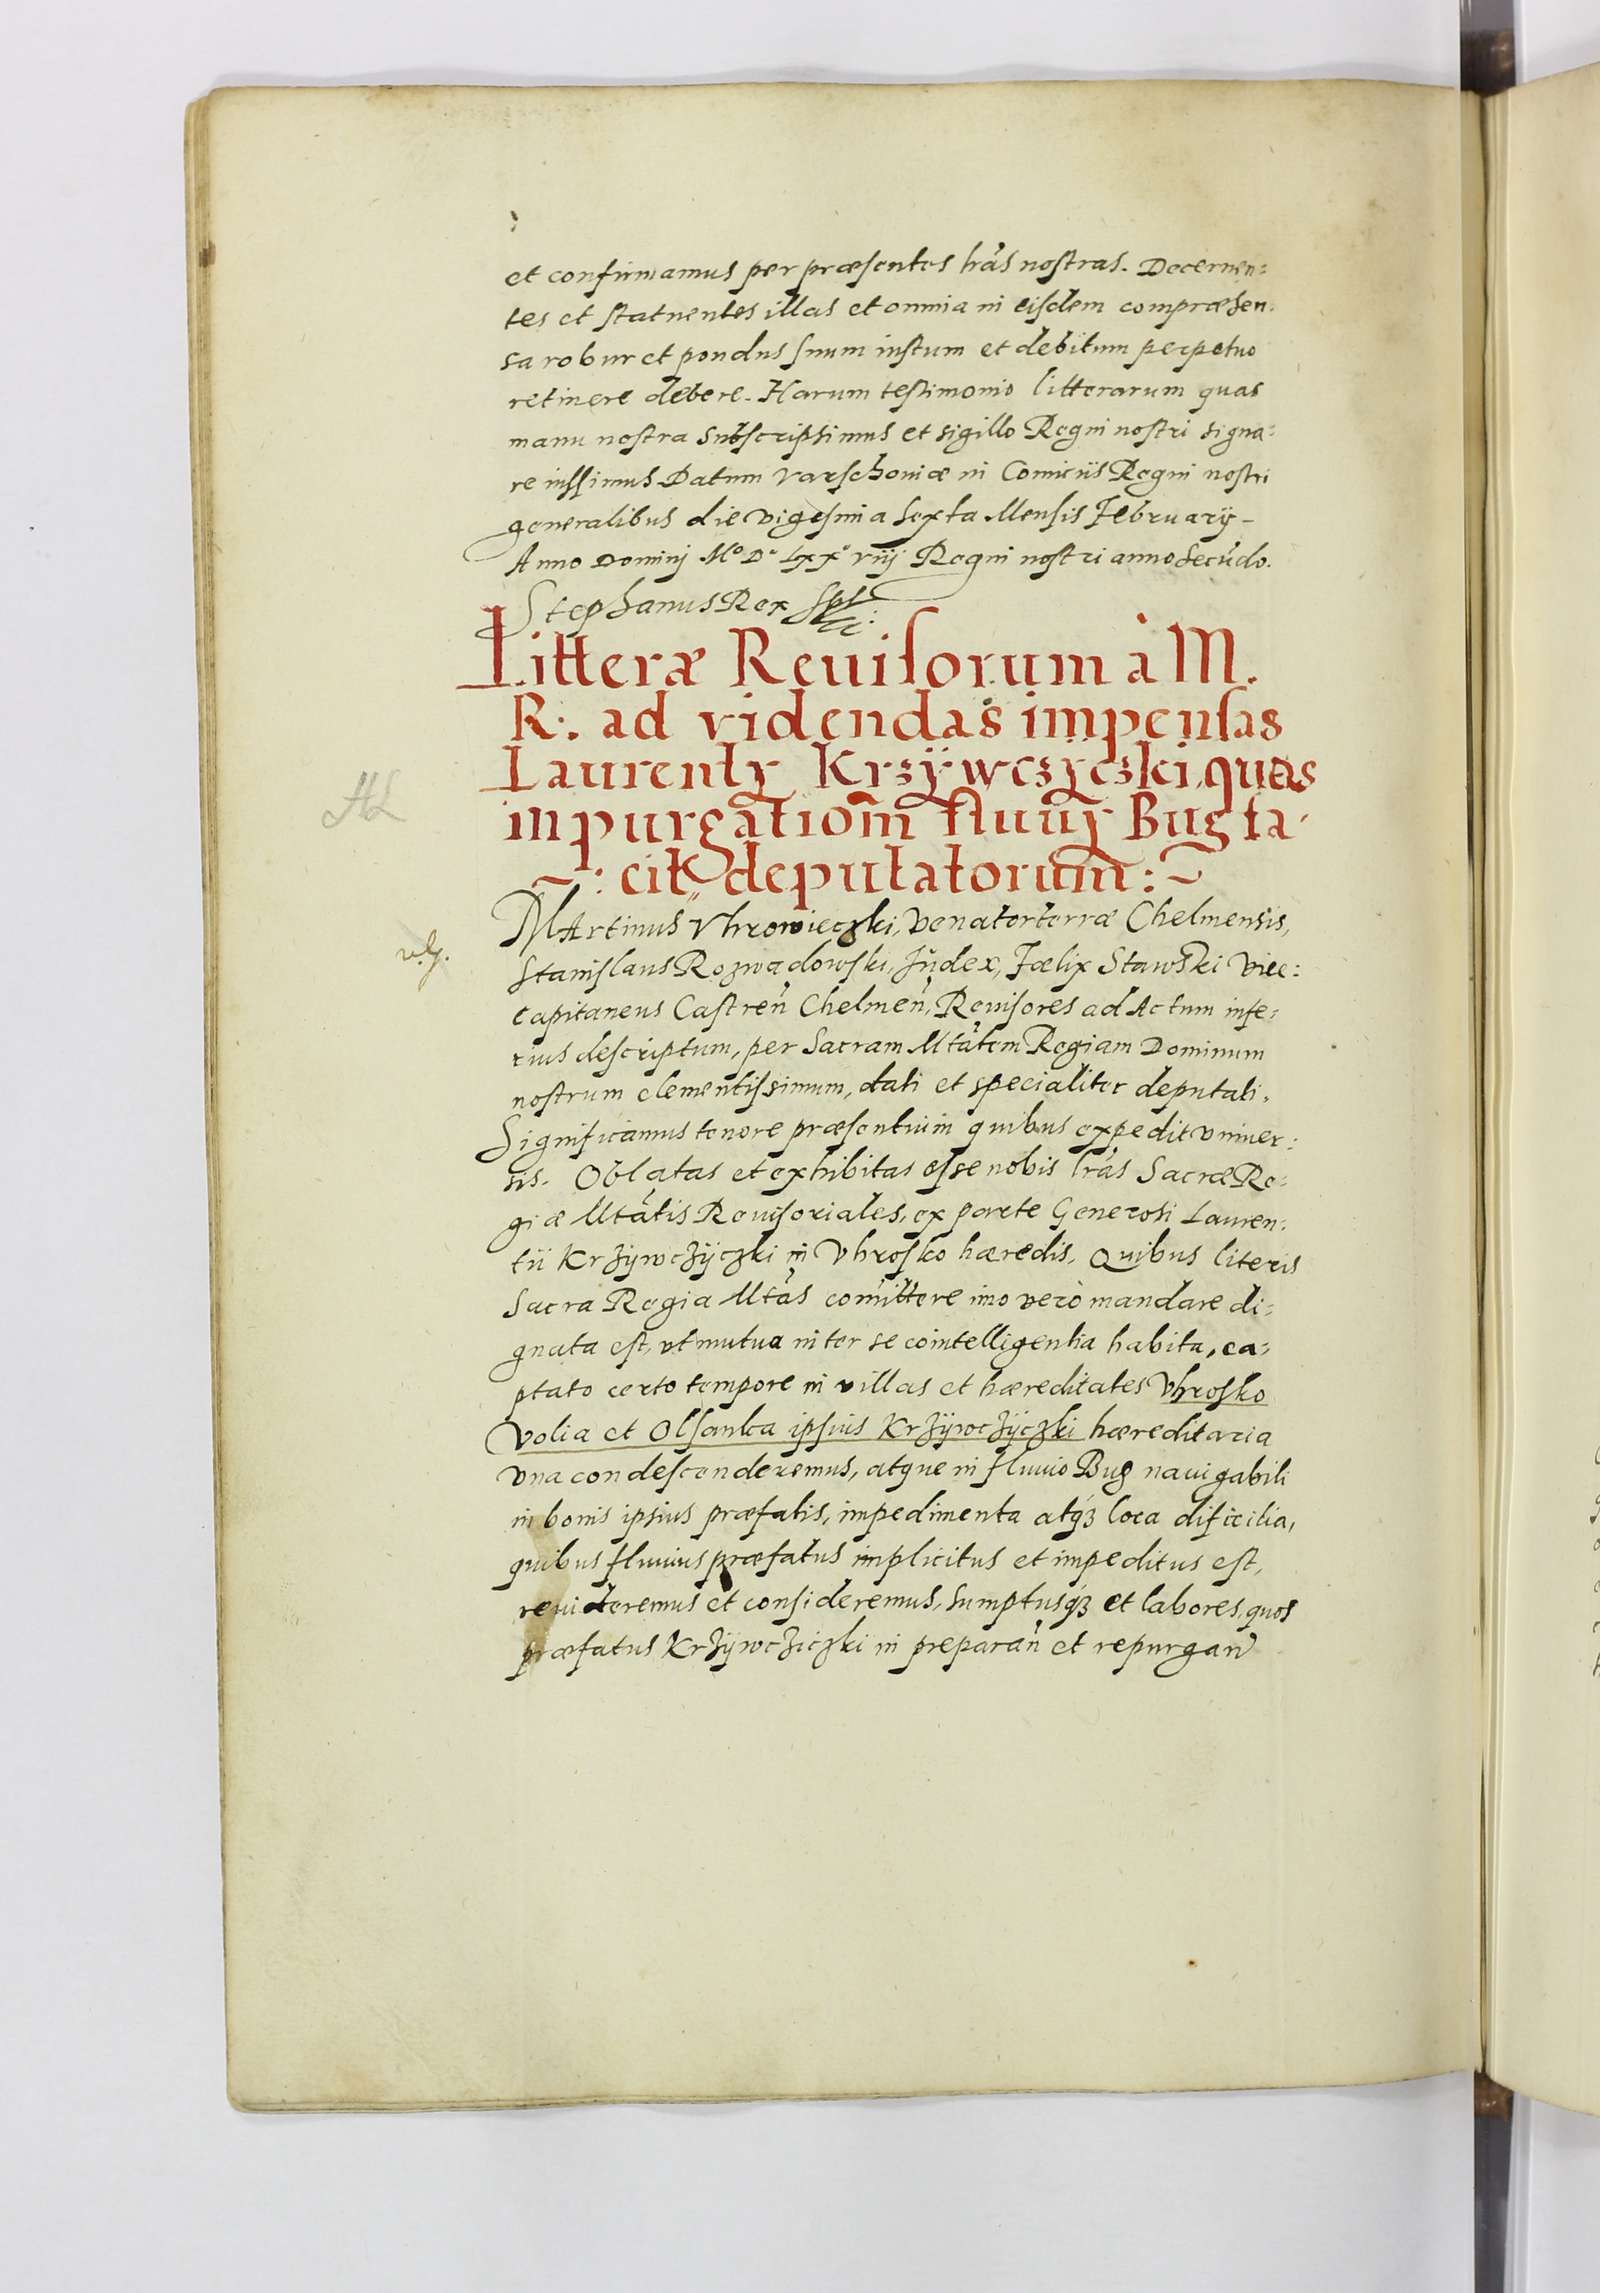 et confirmamus per præsentes lrãs nostras. Decernen=
tes et statuentes illas et omnia in eisdem compræhen=
sa robur et pondus suum iustum et debitum perpetuo
retinere debere. Harum testimonio litterarum quas
manu nostra subscripsimus et sigillo Regni nostri signa=
re iussimus Datum Varschoviæ in Comitiis Regni nostri
generalibus die vigesima sexta Mensis Februarij –
Anno Dominj Mº Dº Lxxº viij Regni nostri anno secũdo.
Stephanus Rex
Litteræ Reuisorum à M.
R: ad videndas impensas
Laurentÿ Krzÿwczÿczki, quas
in purgationẽ fluuÿ Bug fa=
~: cit, deputatorum: ~
AL
Martinus Vhrowieczki, Venator terræ Chelmensis,
Stanislaus Rozwadowski, Iudex, Fælix Stawski Vice=
capitaneus Castren̄ Chelmen̄, Reuisores ad Actum infe=
rius descriptum, per Sacram Mtãtem Regiam Dominum
nostrum clementissimum, dati et specialiter deputati,
Significamus tenore præsentium quibus expedit vniuer=
sis. Oblatas et exhibitas esse nobis lrãs Sacræ Re=
giæ Mtãtis Reuisoriales, ex parte Generosi Lauren=
tii Krzÿwczÿczki in Vhrosko hæredis, Quibus literis
Sacra Regia Mtãs comittere imo verò mandare di=
gnata est, vt mutua inter se cointelligentia habita, ca=
ptato certo tempore in villas et hæreditates Vhrosko
Volia et Olsanka ipsius Krzÿwczÿczki hæreditaria
vna condescenderemus, atque in fluuio Bug nauigabili
in bonis ipsius præfatis, impedimenta atqꝫ loca dificilia,
quibus fluuius præfatus implicitus et impeditus est,
reuideremus et consideremus, sumptusqꝫ et labores, quos
præfatus Krzÿwcziczki in preparan̄ et repurgan̄